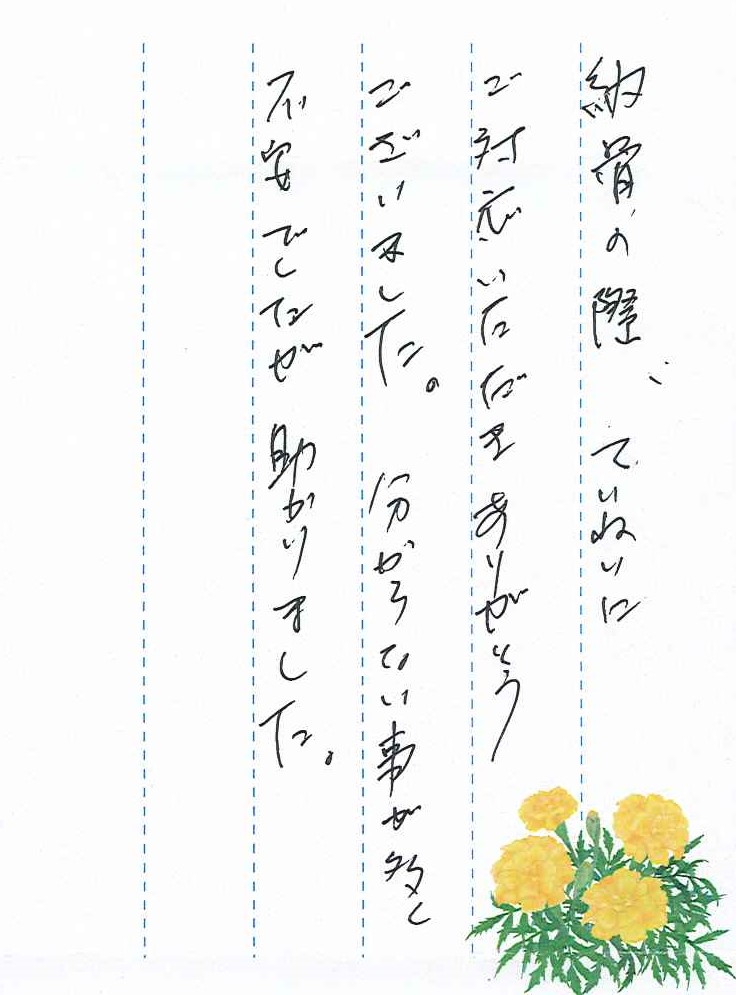 納骨の際、ていねいに
ご対応いただきありがとう
ございました。分からない事が多く
不安でしたが助かりました。